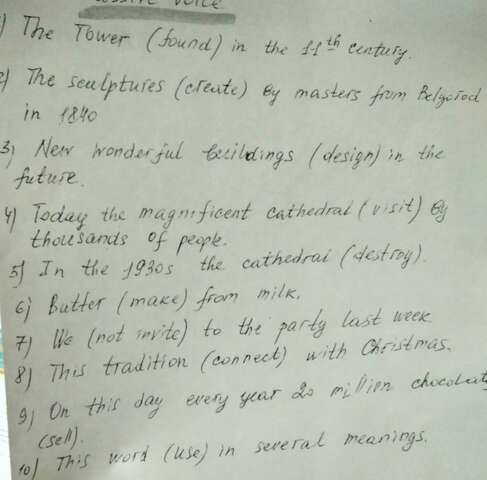 Passive Voice
1) The Tower (found) in the 11th century.
2) The sculptures (create) by masters from Belgorod
in 1840
3) New wonderful buildings (design) in the
future.
4) Today the magnificent cathedral (visit) by
thousands of people.
5) In the 1930s the cathedral (destroy).
6) Butter (make) from milk.
7) We (not invite) to the party last week
8) This tradition (connect) with Christmas.
9) On this day every year 20 million chocolat
(sell).
10) This word (use) in several meanings.